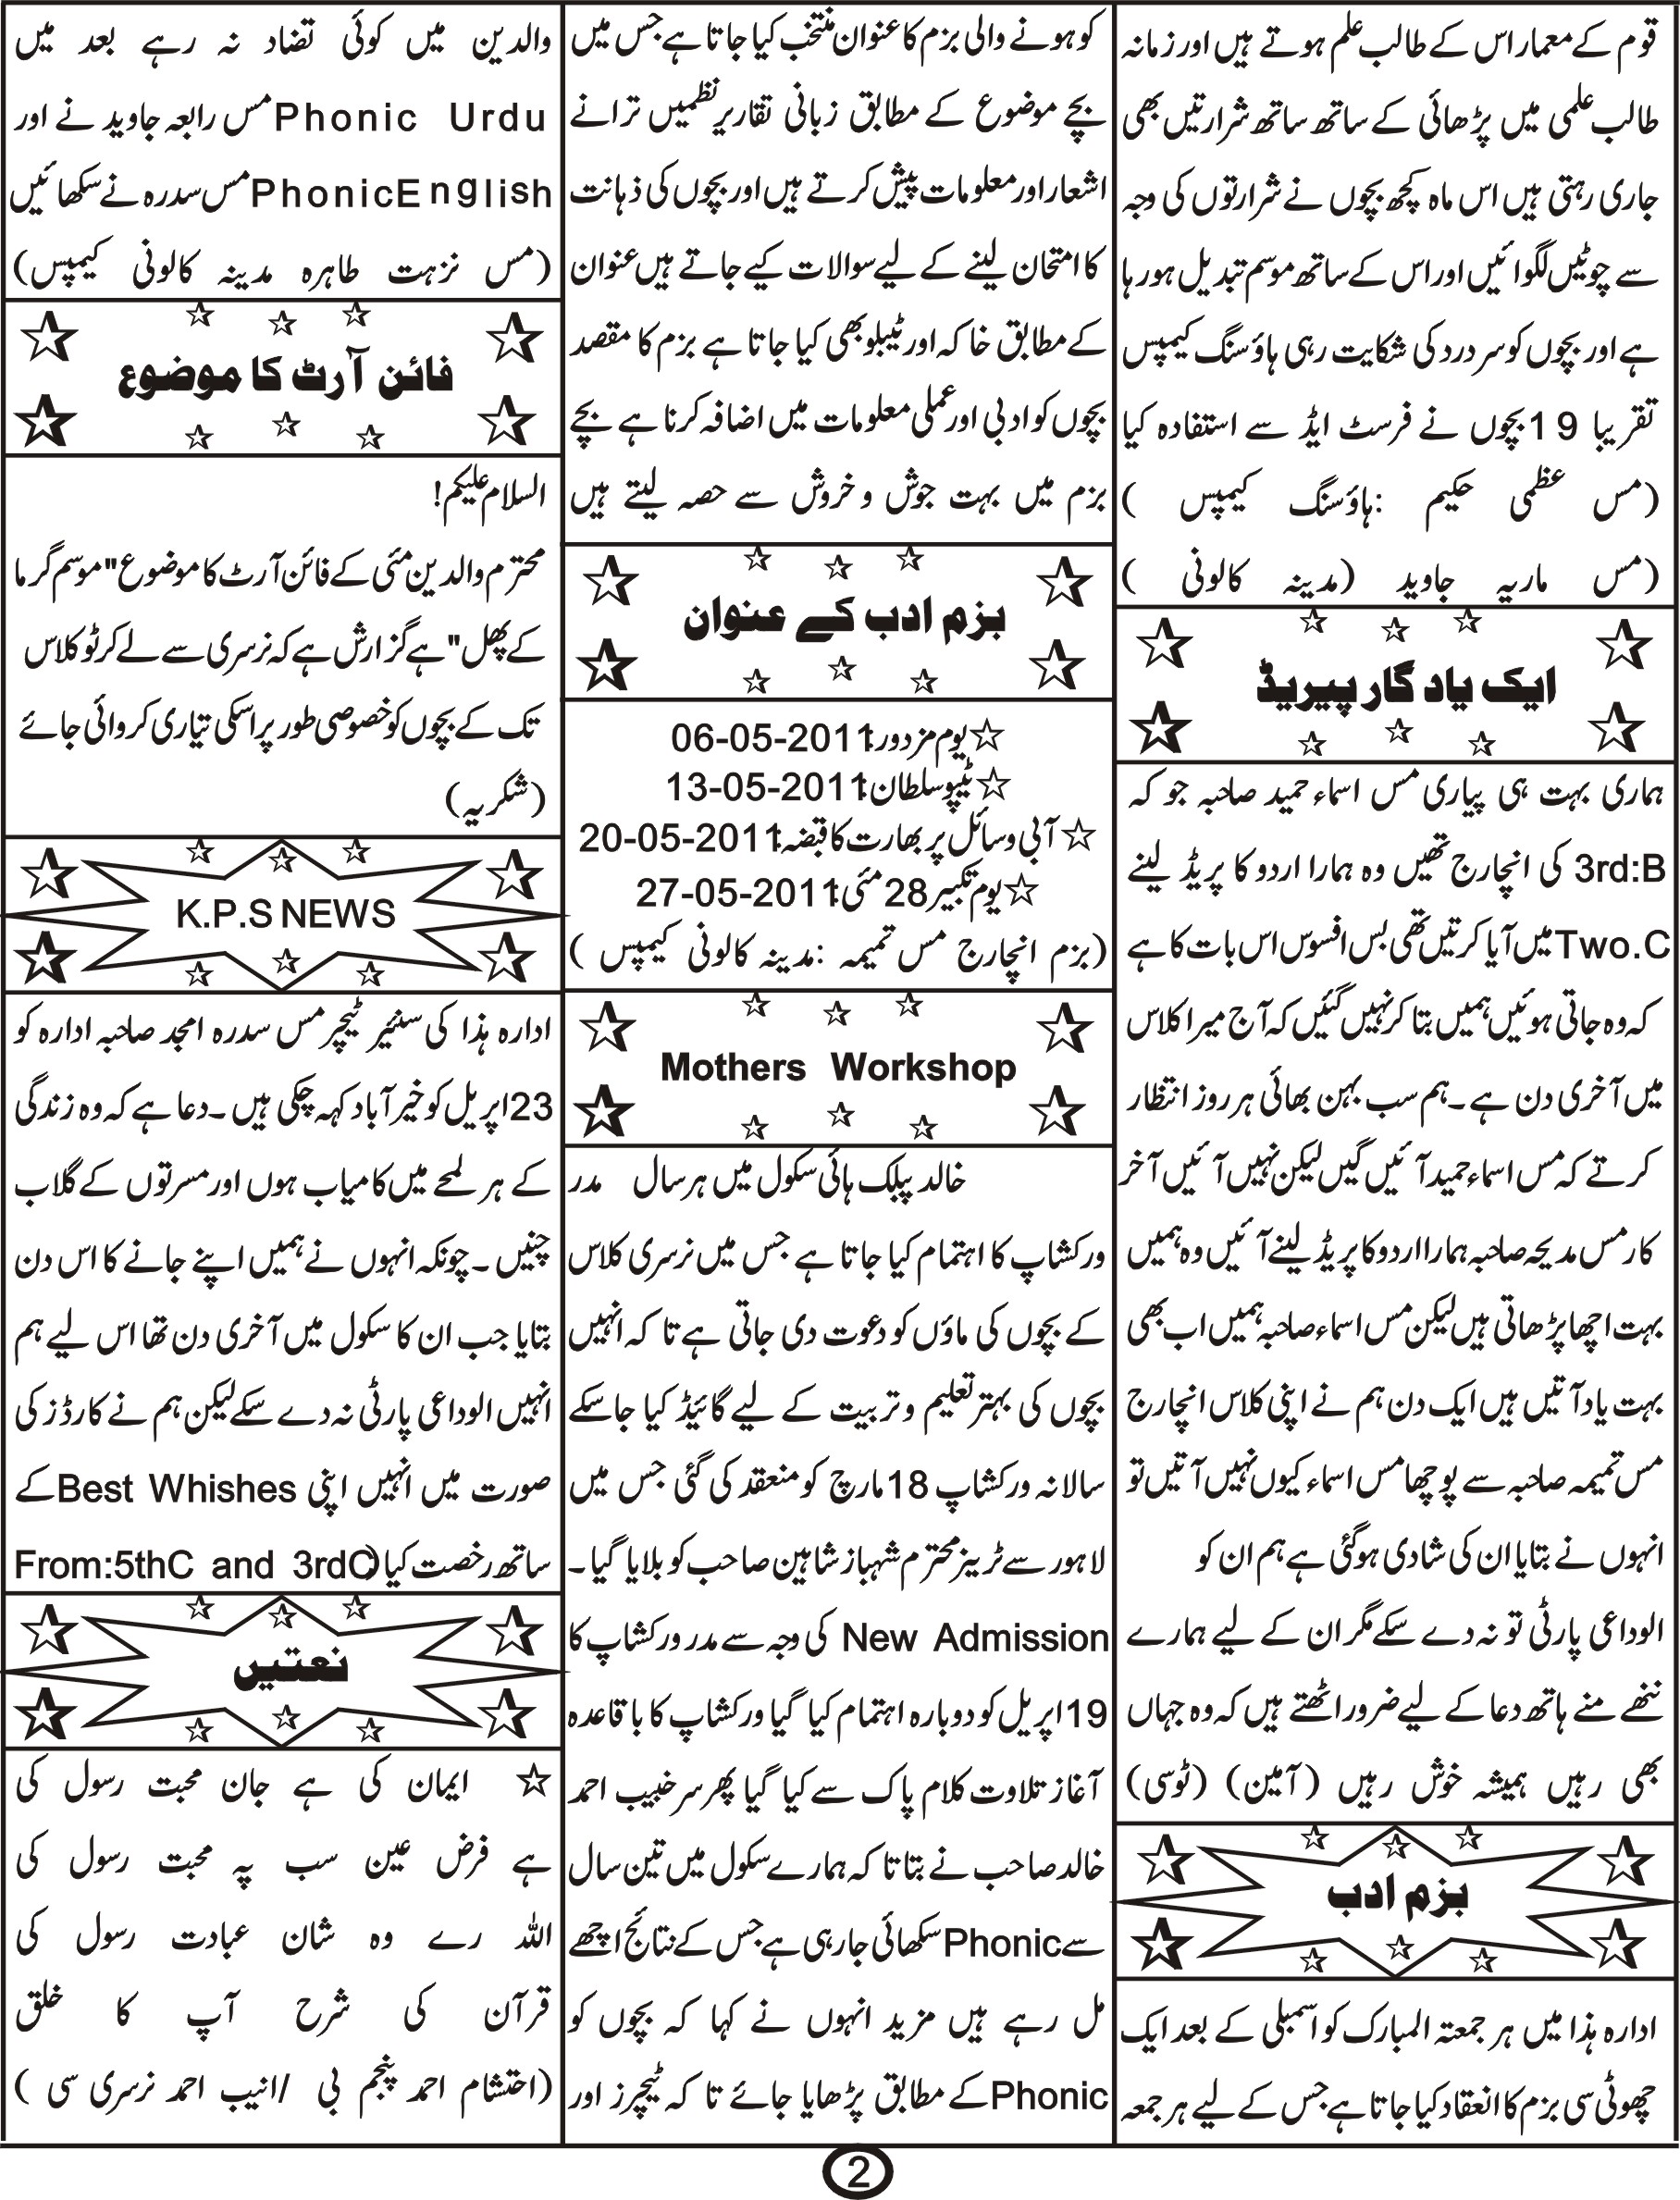 قوم کے معمار اس کے طالب علم ہوتے ہیں اور زمانہ
طالب علمی میں پڑھائی کے ساتھ ساتھ شرارتیں بھی
جاری رہتی ہیں اس ماہ کچھ بچوں نے شرارتوں کی وجہ
سے چوٹیں لگوائیں اور اس کے ساتھ موسم تبدیل ہو رہا
ہے اور بچوں کو سر درد کی شکایت رہی ہاؤسنگ کیمپس
تقریبا 19 بچوں نے فرسٹ ایڈ سے استفادہ کیا
(مس عظمی حکیم :ہاؤسنگ کیمپس )
(مس ماریہ جاوید (مدینہ کالونی )
ایک یاد گار پیریڈ
ہماری بہت ہی پیاری مس اسماء حمید صاحبہ جو کہ
3rd:B کی انچارج تھیں وہ ہمارا اردو کا پریڈ لینے
Two.C میں آیا کرتیں تھی بس افسوس اس بات کا ہے
کہ وہ جاتی ہوئیں ہمیں بتا کر نہیں گئیں کہ آج میرا کلاس
میں آخری دن ہے۔ ہم سب بہن بھائی ہر روز انتظار
کرتے کہ مس اسماء حمید آئیں گیں لیکن نہیں آئیں آخر
کار مس مدیحہ صاحبہ ہمارا اردو کا پریڈ لینے آئیں وہ ہمیں
بہت اچھا پڑھاتی ہیں لیکن مس اسماء صاحبہ ہمیں اب بھی
بہت یاد آتیں ہیں ایک دن ہم نے اپنی کلاس انچارج
مس تمیمہ صاحبہ سے پوچھا مس اسماء کیوں نہیں آتیں تو
انہوں نے بتایا ان کی شادی ہو گئی ہے ہم ان کو
الوداعی پارٹی تو نہ دے سکے مگر ان کے لیے ہمارے
ننھے منے ہاتھ دعا کے لیے ضرور اٹھتے ہیں کہ وہ جہاں
بھی رہیں ہمیشہ خوش رہیں (آمین) (ٹوسی)
بزم ادب
ادارہ ہذا میں ہر جمعتہ المبارک کو اسمبلی کے بعد ایک
چھوٹی سی بزم کا انعقاد کیا جاتا ہے جس کے لیے ہر جمعہ
کو ہونے والی بزم کا عنوان منتخب کیا جاتا ہے جس میں
بچے موضوع کے مطابق زبانی تقاریر نظمیں ترانے
اشعار اور معلومات پیش کرتے ہیں اور بچوں کی ذہانت
کا امتحان لینے کے لیے سوالات کیے جاتے ہیں عنوان
کے مطابق خاکہ اور ٹیبلو بھی کیا جاتا ہے بزم کا مقصد
بچوں کو ادبی اور عملی معلومات میں اضافہ کرنا ہے بچے
بزم میں بہت جوش و خروش سے حصہ لیتے ہیں
بزم ادب کے عنوان
☆یوم مزدور:06-05-2011
☆ٹیپو سلطان:13-05-2011
☆آبی وسائل پر بھارت کا قبضہ:20-05-2011
☆یوم تکبیر28 مئی:27-05-2011
(بزم انچارج مس تمیمہ :مدینہ کالونی کیمپس )
Mothers Workshop
خالد پبلک ہائی سکول میں ہر سال مدر
ورکشاپ کا اہتمام کیا جاتا ہے جس میں نرسری کلاس
کے بچوں کی ماؤں کو دعوت دی جاتی ہے تا کہ انہیں
بچوں کی بہتر تعلیم و تربیت کے لیے گائیڈ کیا جا سکے
سالانہ ورکشاپ 18 مارچ کو منعقد کی گئی جس میں
لاہور سے ٹرینر محترم شہباز شاہین صاحب کو بلایا گیا۔
New Admission کی وجہ سے مدر ورکشاپ کا
19 اپریل کو دوبارہ اہتمام کیا گیا ورکشاپ کا باقاعدہ
آغاز تلاوت کلام پاک سے کیا گیا پھر سر خبیب احمد
خالد صاحب نے بتاتا کہ ہمارے سکول میں تین سال
سے Phonic سکھائی جا رہی ہے جس کے نتائج اچھے
مل رہے ہیں مزید انہوں نے کہا کہ بچوں کو
Phonic کے مطابق پڑھایا جائے تا کہ ٹیچرز اور
والدین میں کوئی تضاد نہ رہے بعد میں
Phonic Urdu مس رابعہ جاوید نے اور
PhonicEnglish مس سدرہ نے سکھائیں
(مس نزہت طاہرہ مدینہ کالونی کیمپس)
فائن آرٹ کا موضوع
السلام علیکم!
محترم والدین مئی کے فائن آرٹ کا موضوع "موسم گرما
کے پھل" ہے گزارش ہے کہ نرسری سے لے کر ٹو کلاس
تک کے بچوں کو خصوصی طور پر اسکی تیاری کروائی جائے
(شکریہ)
K.P.S NEWS
ادارہ ہذا کی سنیئر ٹیچر مس سدرہ امجد صاحبہ ادارہ کو
23 اپریل کو خیر آباد کہہ چکی ہیں۔ دعا ہے کہ وہ زندگی
کے ہر لمحے میں کامیاب ہوں اور مسرتوں کے گلاب
چنیں۔ چونکہ انہوں نے ہمیں اپنے جانے کا اس دن
بتایا جب ان کا سکول میں آخری دن تھا اس لیے ہم
انہیں الوداعی پارٹی نہ دے سکے لیکن ہم نے کارڈز کی
صورت میں انہیں اپنی Best Whishes کے
ساتھ رخصت کیا (From:5thC and 3rdC
نعتیں
☆ ایمان کی ہے جان محبت رسول کی
ہے فرض عین سب پہ محبت رسول کی
اللہ رے وہ شان عبادت رسول کی
قرآن کی شرح آپ کا خلق
(احتشام احمد پنجم بی /انیب احمد نرسری سی )
2